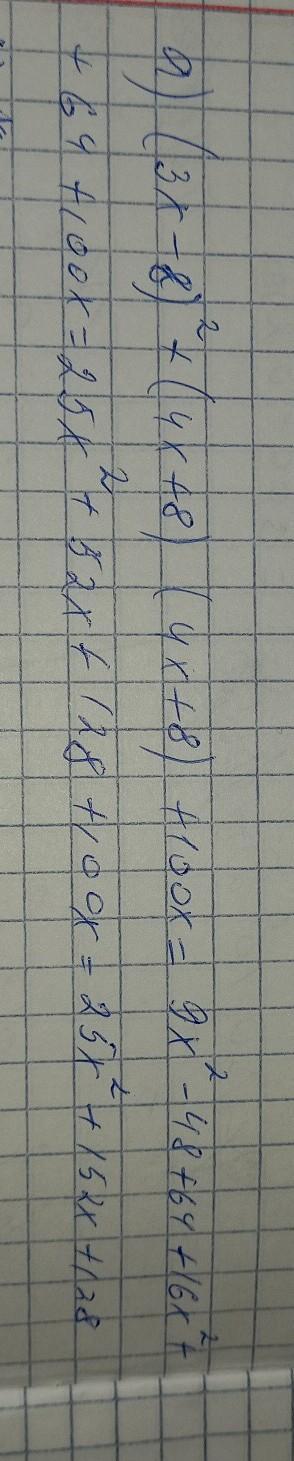 а) (3x-8)² + (4x+8) (4x+8) + 100x = 9x² - 48 + 64 + 16x² +
+ 64 + 100x = 25x² + 52x + 128 + 100x = 25x² + 152x + 128